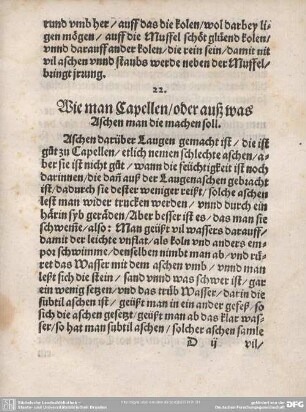 rund vmb her/ auff das die kolen/ wol darbey li
gen mögen/ auff die Muffel schöt glüend kolen/
vnnd darauff ander kolen/ die rein sein/ damit nit
vil aschen vnnd staubs werde neben der Muffel/
bringt jrzung.
22.
Wie man Capellen/ oder auß was
Aschen man die machen soll.
Aschen darüber Laugen gemacht ist/ die ist
gůt zu Capellen/ etlich nemen schlechte aschen/ a-
ber sie ist nicht gůt/ wann die feüchtigkeit ist noch
darinnen/ die dañ auß der Laugenaschen gebracht
ist/ dadurch sie dester weniger reißt/ solche aschen
lest man wider trucken werden/ vnnd durch ein
härin syb geräden/ Aber besser ist es/ das man sie
schweiñe/ also: Man geüßt vil wassers darauff/
damit der leichte vnflat/ als koln vnd anders em-
por schwimme/ denselben nimbt man ab/ vnd rü-
ret das Wasser mit dem aschen vmb/ vnnd man
leßt sich die stein/ sand vnnd was schwer ist/ gar
ein wenig setzen/ vnd das trüb Wasser/ darin die
subtil aschen ist/ geüßt man in ein ander gefeß/ so
sich die aschen gesetzt/ geüßt man ab das klar was-
ser/ so hat man subtil aschen/ solcher aschen samle
D ij
vil/